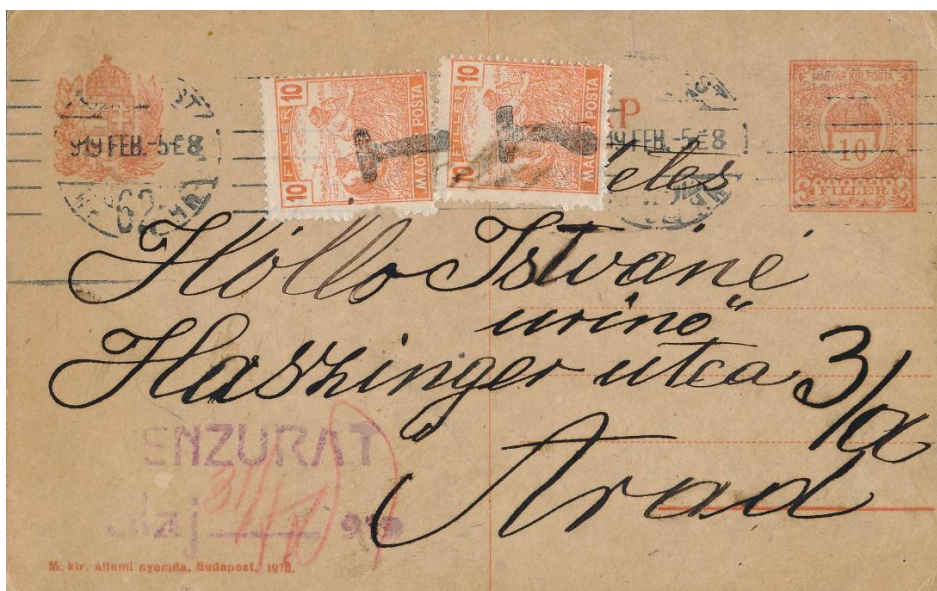 919 FEB. -5 E 8
62
10 FILLÉR
MAGYAR POSTA
10
10 FILLÉR
MAGYAR POSTA
10
P
919 FEB. -5 E 8
MAGYAR KIR. POSTA
10
FILLÉR
Hollo Istváné
urinő
Haszinger utca 3/a
Arad
ENZURAT
M. kir. állami nyomda. Budapest, 1918.